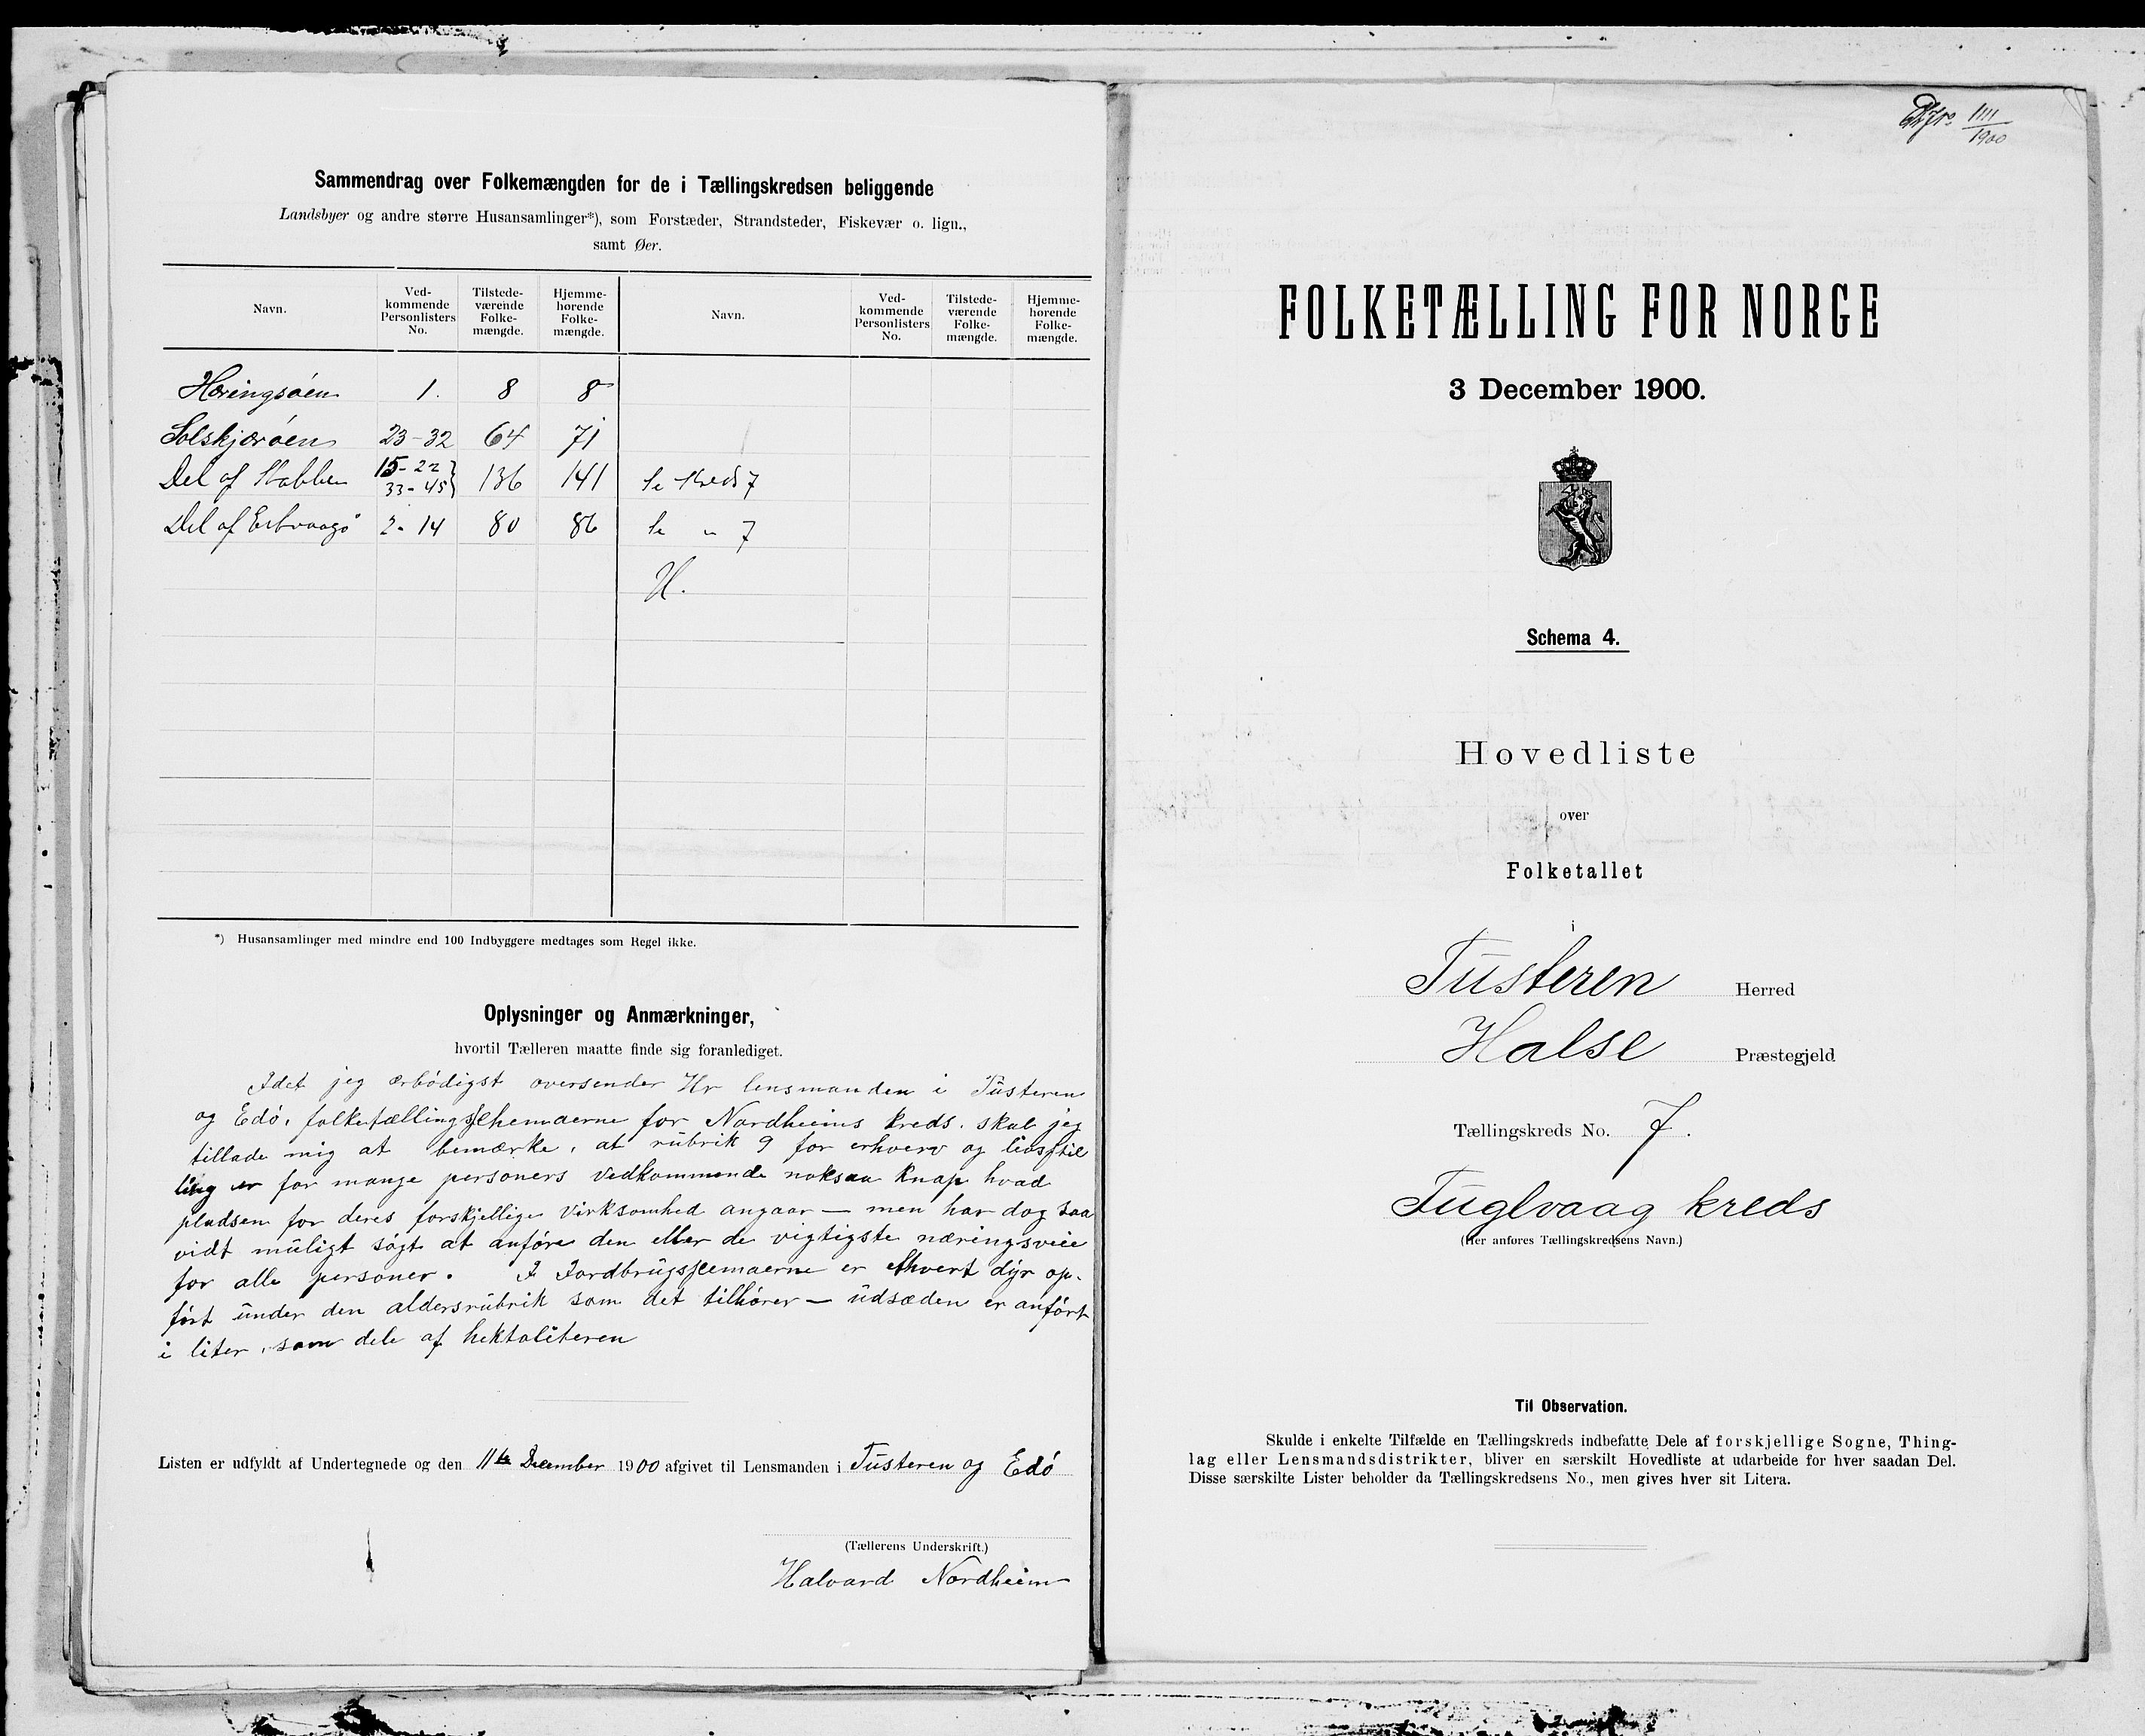 Sammendrag over Folkemængden for de i Tællingskredsen beliggende
Landsbyer og andre større Husansamlinger*), som Forstæder, Strandsteder, Fiskevær o. lign.,
samt Øer.
Navn. Ved-kommende Personlisters No. Tilstede-værende Folke-mængde. Hjemme-hørende Folke-mængde. Navn. Ved-kommende Personlisters No. Tilstede-værende Folke-mængde. Hjemme-hørende Folke-mængde.
Haringsöen 1. 8 8
Solskjæröen 23-32 64 71
Del af Stabben 15-22 33-45 136 141 Se Kreds 7
Del af 2-14 80 86 Se " 7
H.
*) Husansamlinger med mindre end 100 Indbyggere medtages som Regel ikke.
Oplysninger og Anmærkninger,
hvortil Tælleren maatte finde sig foranlediget.
Idet jeg ærbödigst oversender Hr lensmanden i Tusteren
og Edö, folketællingsschemaerne for Nordheims kreds, skal jeg
tillade mig at bemærke, at rubrik 9 for erhverv og livsstil
ling er for mange personers vedkommende noksaa knap hvad
pladsen for deres forskjellige virksomhed angaar — men har dog saa
vidt muligt sögt at anföre den eller de vigtigste næringsveie
for alle personer. I Jordbrugsscemaerne er ethvert dyr op-
fört under den aldersrubrik som det tilhörer — udsæden er anfört
i liter, som dele af hektoliteren
Listen er udfyldt af Undertegnede og den 11te December 1900 afgivet til Lensmanden i Tusteren og Edö
(Tællerens Underskrift.)
Halvard Nordheim
1111
1900
FOLKETÆLLING FOR NORGE
3 December 1900.
Schema 4.
Hovedliste
over
Folketallet
i
Tusteren Herred
Halse Præstegjeld
Tællingskreds No. 7.
Fuglvaag kreds
(Her anføres Tællingskredsens Navn.)
Til Observation.
Skulde i enkelte Tilfælde en Tællingskreds indbefatte Dele af forskjellige Sogne, Thing-
lag eller Lensmandsdistrikter, bliver en særskilt Hovedliste at udarbeide for hver saadan Del.
Disse særskilte Lister beholder da Tællingskredsens No., men gives hver sit Litera.